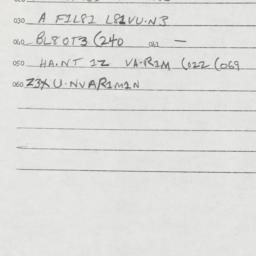 030 A F1L81 L81VU.N3
040 BL8OT3 (240 041 —
050 HA.NT 1Z VA.R1M (022 (069
060 Z3X U.NVAR1M1N